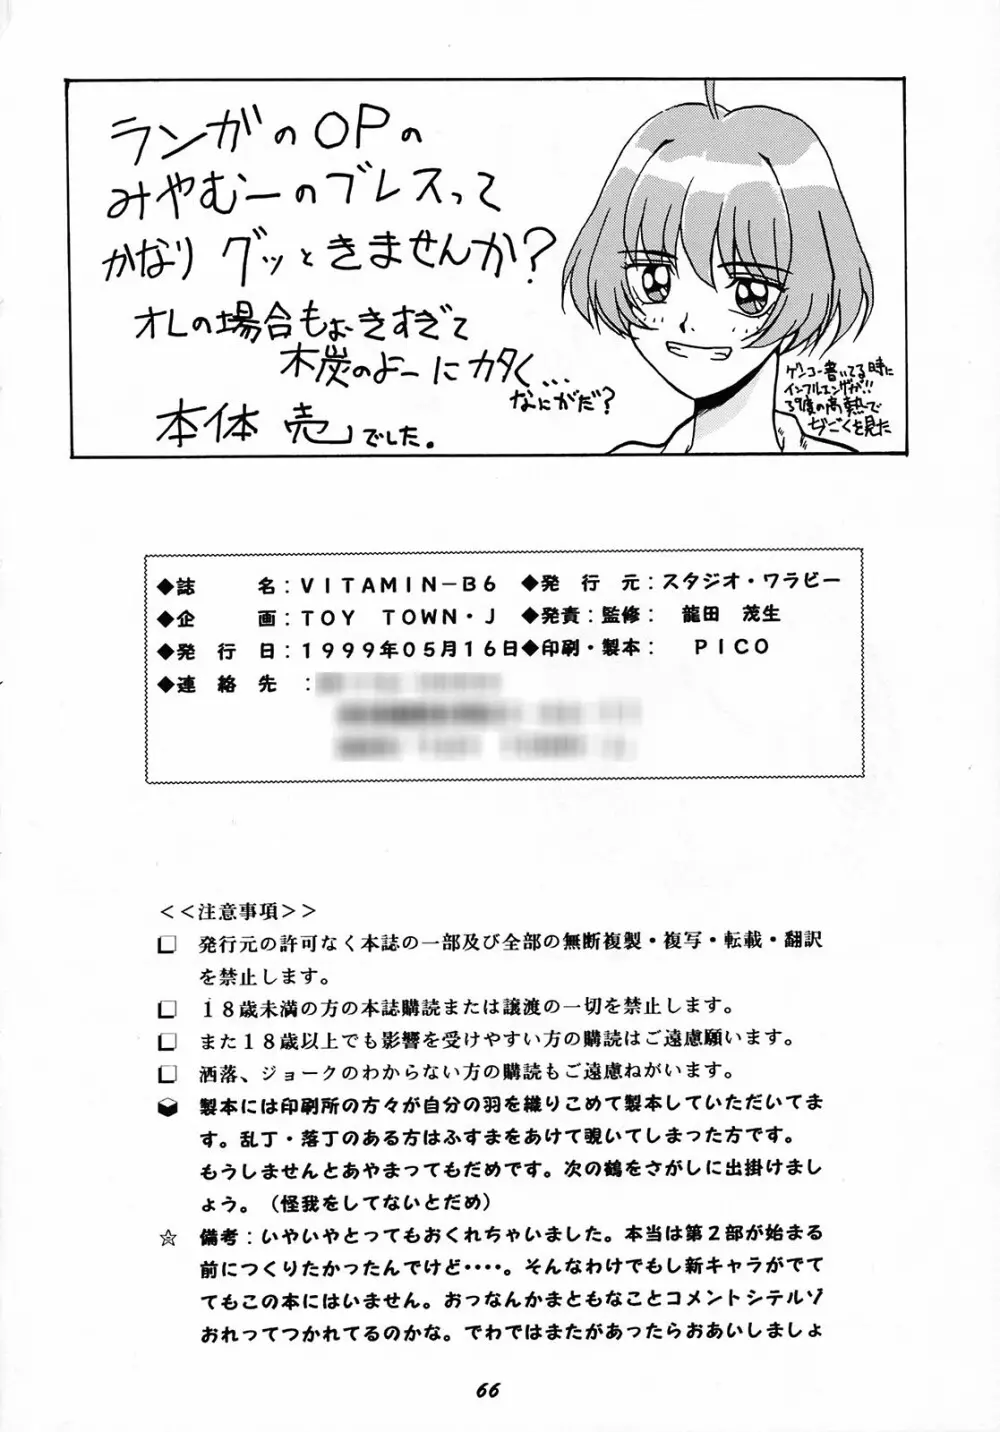 ランガのOPの
みやむーのブレスって
かなり グッときませんか?
オレの場合もおきすぎて
木炭のよーにカタく...
なにがだ?
本体 売でした。
ゲンコー書いてる時に
インフルエンザが!!
39度の高熱で
ぢごくを見た
◆誌　　　名：ＶＩＴＡＭＩＮ－Ｂ６　◆発　行　元：スタジオ・ワラビー
◆企　　　画：ＴＯＹ　ＴＯＷＮ・Ｊ　◆発責：監修：　龍田　茂生
◆発　行　日：１９９９年０５月１６日◆印刷・製本：　　ＰＩＣＯ
◆連　絡　先　：
＜＜注意事項＞＞
□　発行元の許可なく本誌の一部及び全部の無断複製・複写・転載・翻訳
を禁止します。
□　１８歳未満の方の本誌購読または譲渡の一切を禁止します。
□　また１８歳以上でも影響を受けやすい方の購読はご遠慮願います。
□　洒落、ジョークのわからない方の購読もご遠慮ねがいます。
製本には印刷所の方々が自分の羽を織りこめて製本していただいてま
す。乱丁・落丁のある方はふすまをあけて覗いてしまった方です。
もうしませんとあやまってもだめです。次の鶴をさがしに出掛けまし
ょう。（怪我をしてないとだめ）
☆　備考：いやいやとってもおくれちゃいました。本当は第２部が始まる
前につくりたかったんでけど・・・・。そんなわけでもし新キャラがでて
てもこの本にはいません。おっなんかまともなことコメントシテルゾ
おれってつかれてるのかな。でわではまたがあったらおあいしましょ
66